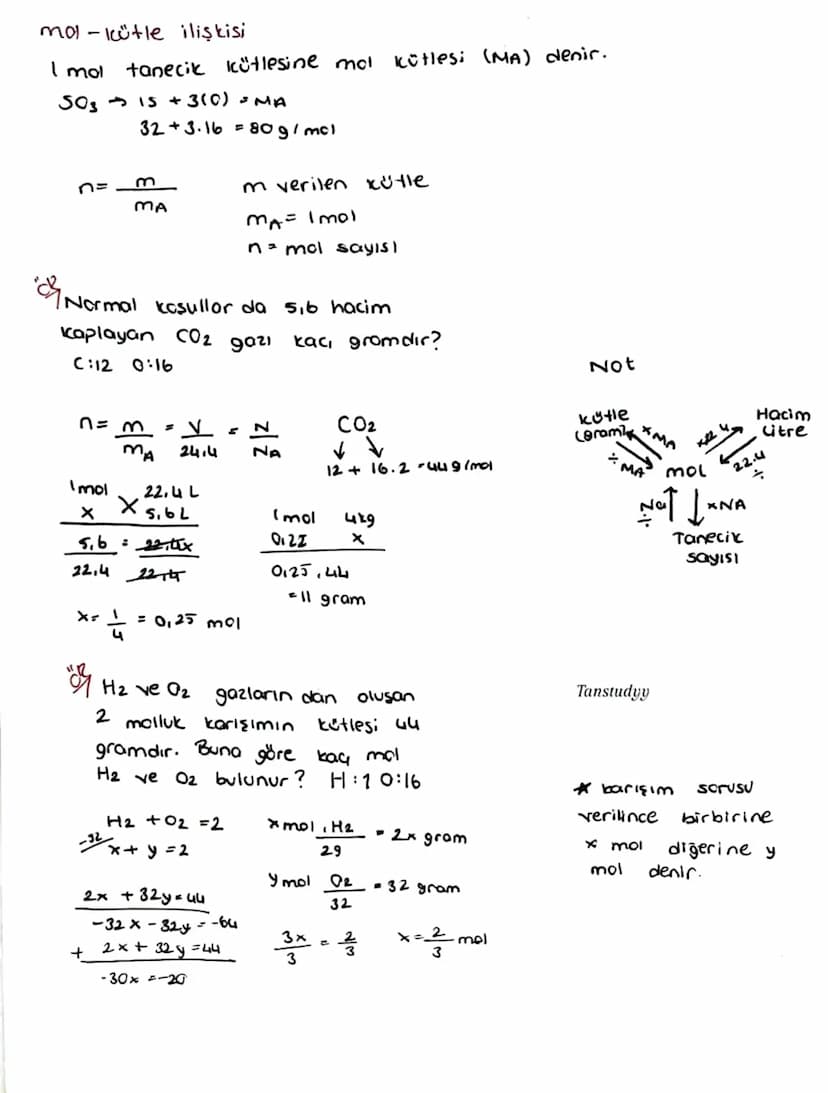 mol - kütle ilişkisi
1 mol tanecik kütlesine mol kütlesi (MA) denir.
SO3 → 1S + 3(O) = MA
32 + 3.16 = 80 g/mol
n = m / mA
m verilen kütle
mA = 1 mol
n = mol sayısı
Ör Normal koşullar da 5,6 hacim
kaplayan CO2 gazı kaç gramdır?
C:12 O:16
n = m / MA = V / 24,4 = N / NA
CO2
↓ ↓
12 + 16.2 = 44 g/mol
1 mol 22,4 L
x 5,6 L
5,6 / 22,4 = 22,4x / 22,4
x = 1/4 = 0,25 mol
1 mol 44g
x
0,25 . 44
= 11 gram
Not
Kütle
(gram)
Hacim
Litre
xMA
÷MA
mol
22.4
÷
÷
xNA
Tanecik
sayısı
Ör H2 ve O2 gazların dan oluşan
2 molluk karışımın kütlesi 44
gramdır. Buna göre kaç mol
H2 ve O2 bulunur? H:1 O:16
H2 + O2 = 2
-32/ x + y = 2
2x + 32y = 44
-32x - 32y = -64
+ 2x + 32y = 44
-30x = -20
x mol . H2 / 2g = 2x gram
y mol O2 / 32 = 32 gram
3x / 3 = 2 / 3 x = 2/3 mol
Tanstudyy
* karışım sorusu
verilince birbirine
x mol diğerine y
mol denir.